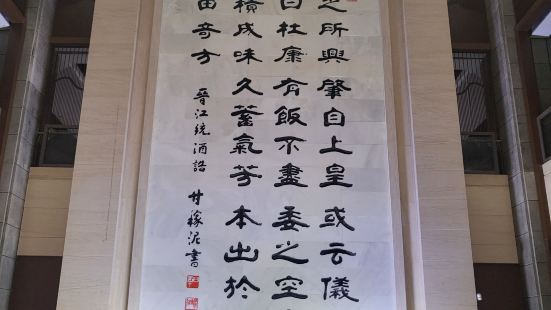 之所興肇自上皇或云儀
曰杜康有飯不盡委之空
積成味久蓄氣芳本出於
由奇方 晉江統酒誥 甘稼泥書